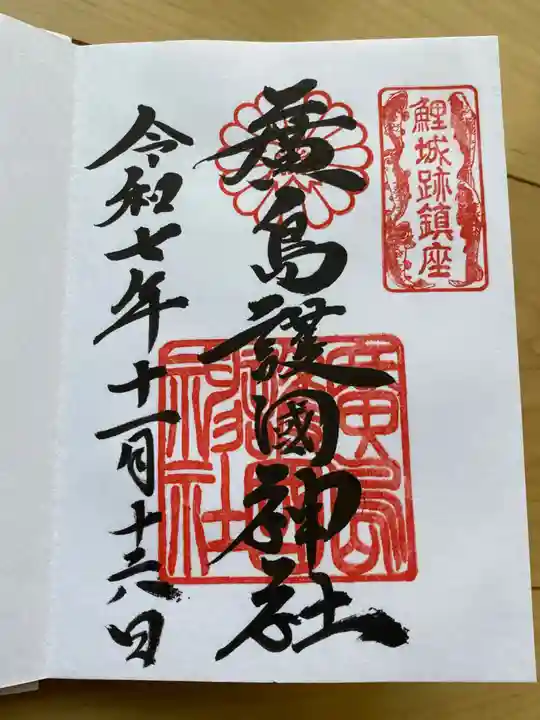 鯉城跡鎮座
廣島護國神社
廣島
護國
神社
令和七年十一月十六日